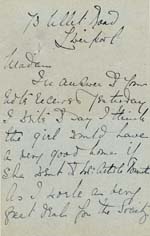 Liverpool
Madam
In answer to your
note received yesterday
I write to say I think
the girl would have
a very good home if
she went to
As I work a very
great deal for the Society